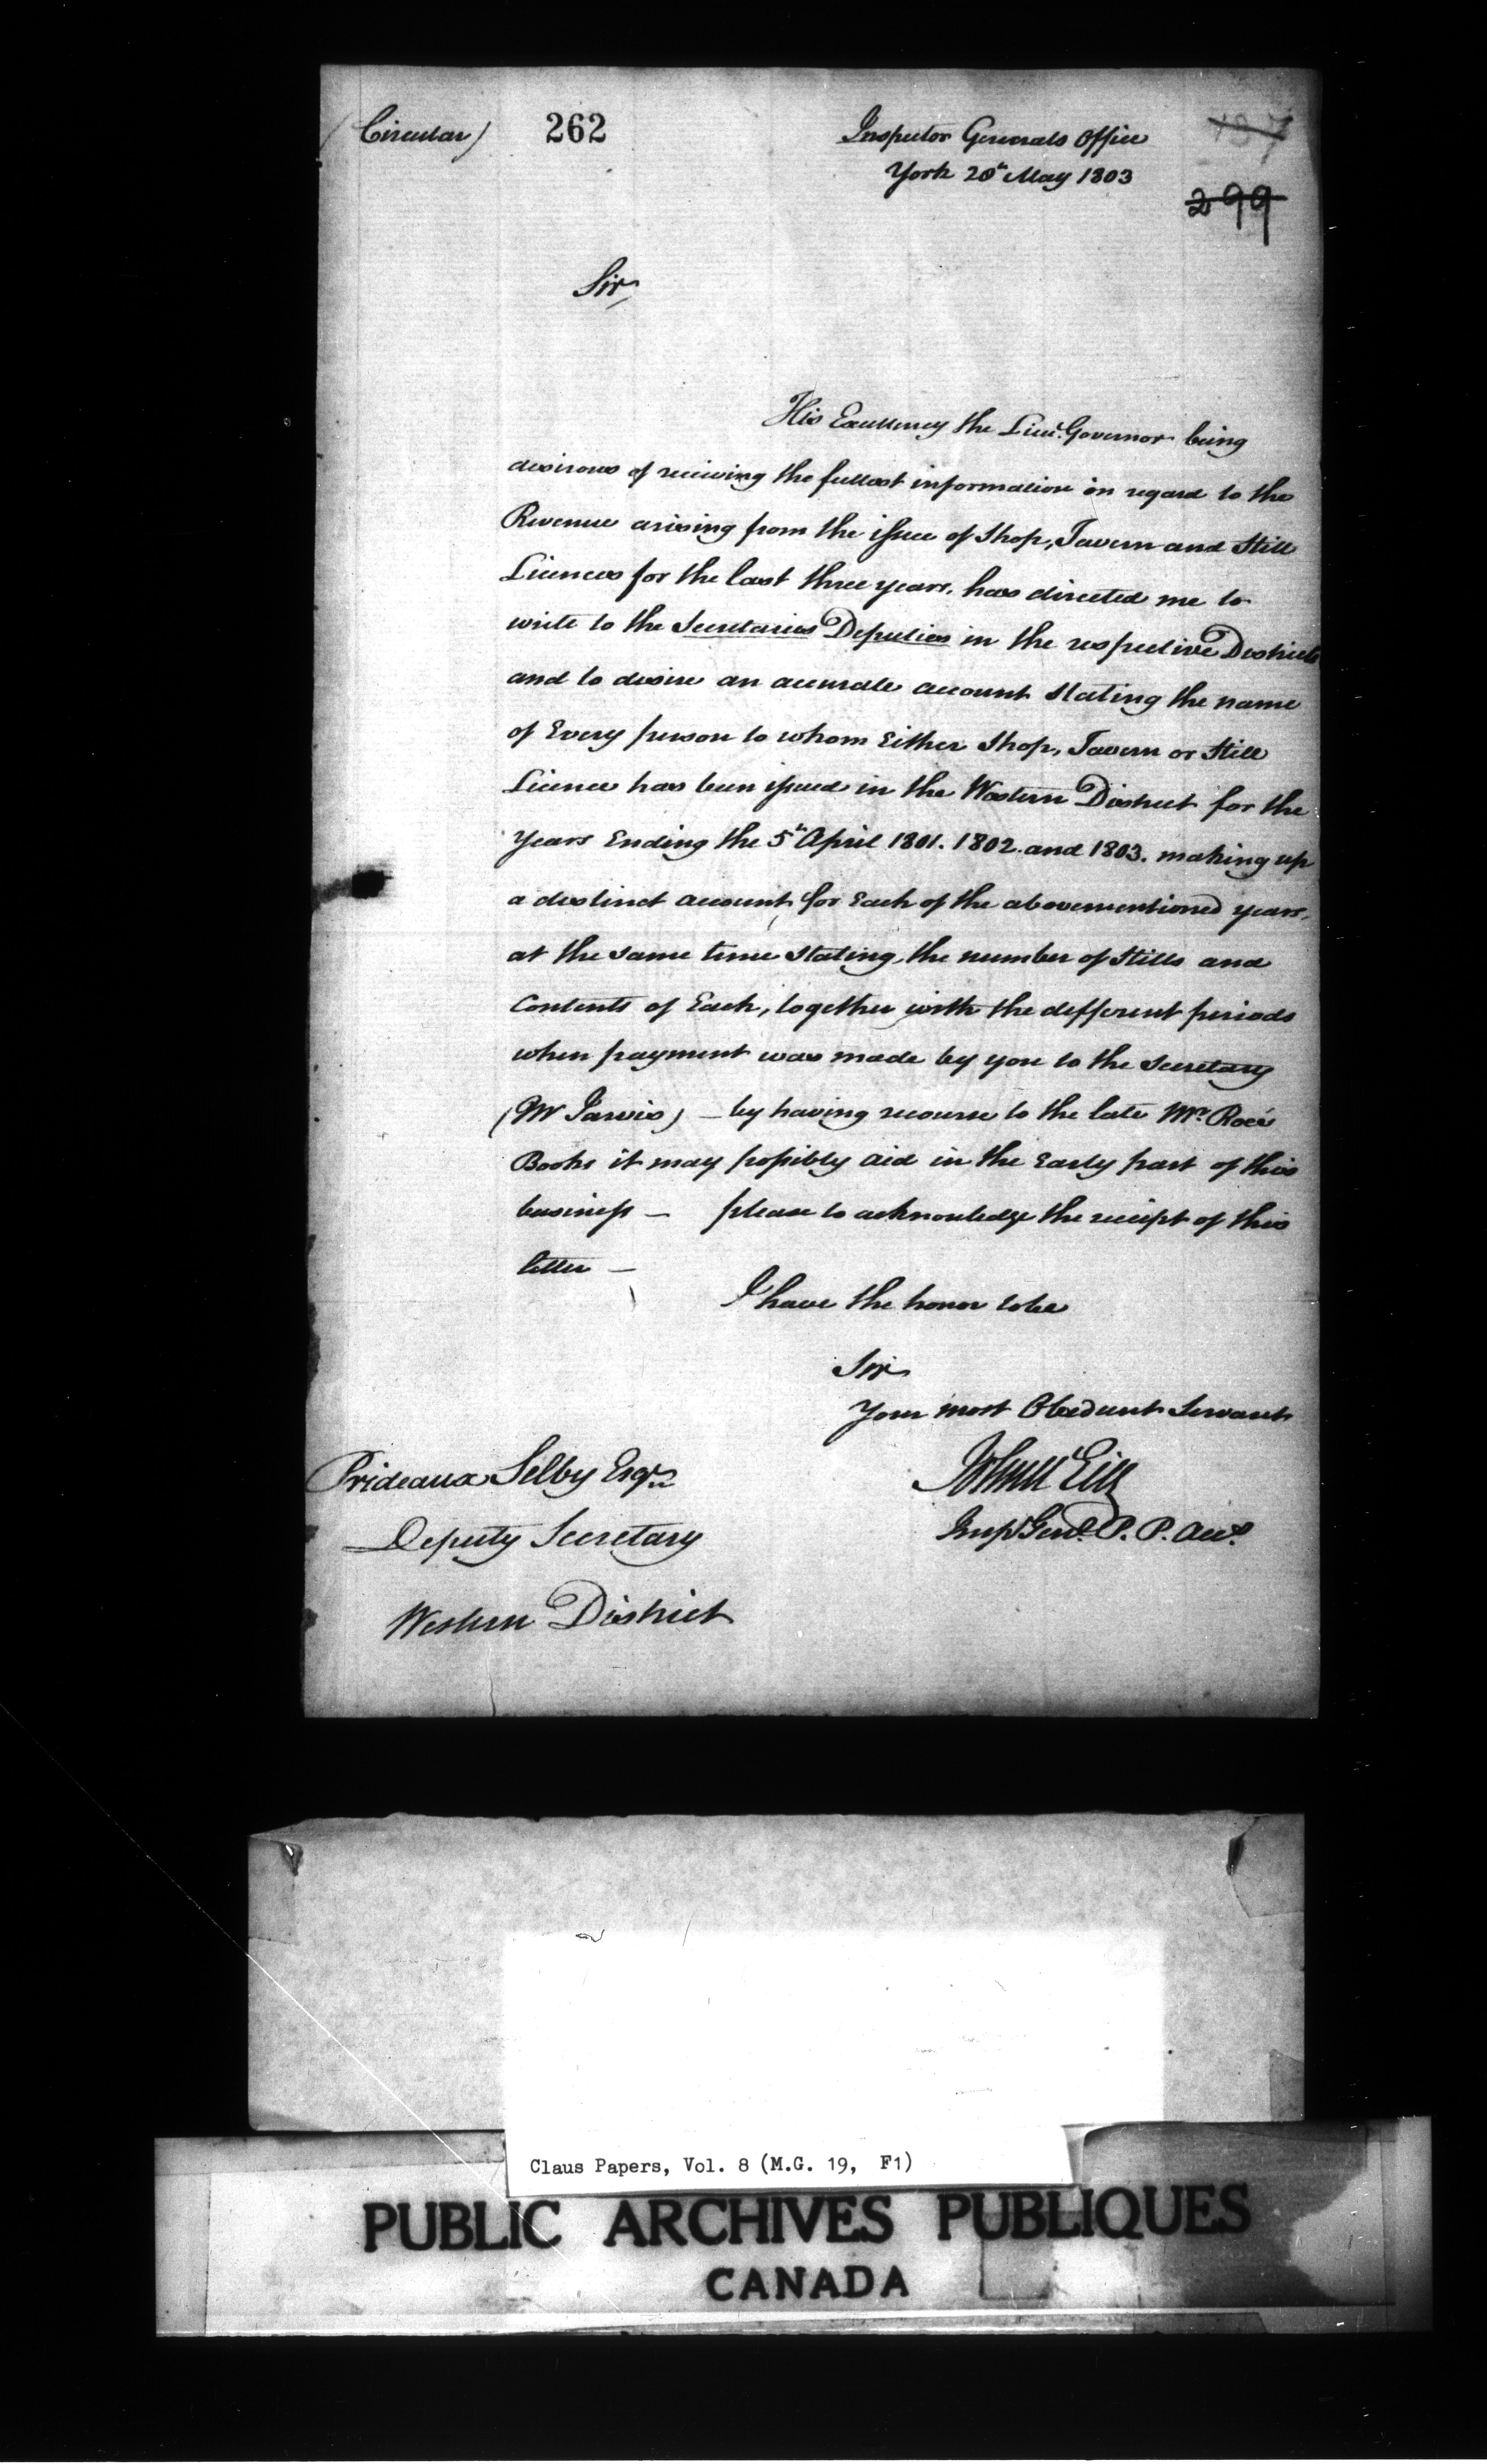 (Circular)
262
Inspector Generals Office
York 20th May 1803
299
Sir,
His Excellency the Lieut. Governor being
desirous of receiving the fullest information in regard to the
Revenue arising from the issue of Shop, Tavern and Still
Licences for the last three years, has directed me to
write to the Secretaries Deputies in the respective Districts
and to desire an accurate account stating the name
of Every person to whom Either Shop, Tavern or Still
Licence has been issued in the Western District for the
Years Ending the 5th April 1801. 1802. and 1803. making up
a distinct account for Each of the abovementioned years,
at the same time stating, the number of Stills and
Contents of Each, together with the different periods
when payment was made by you to the Secretary
(Mr Jarvis) — by having recourse to the late Mr. Roe's
Books it may possibly aid in the Early part of this
business — please to acknowledge the receipt of this
letter —
I have the honor to be
Sir
Your most Obedient Servant
Inspr Genl. P. P. Acc.
Prideaux Selby Esqr.
Deputy Secretary
Western District
Claus Papers, Vol. 8 (M.G. 19, F1)
PUBLIC ARCHIVES PUBLIQUES
CANADA